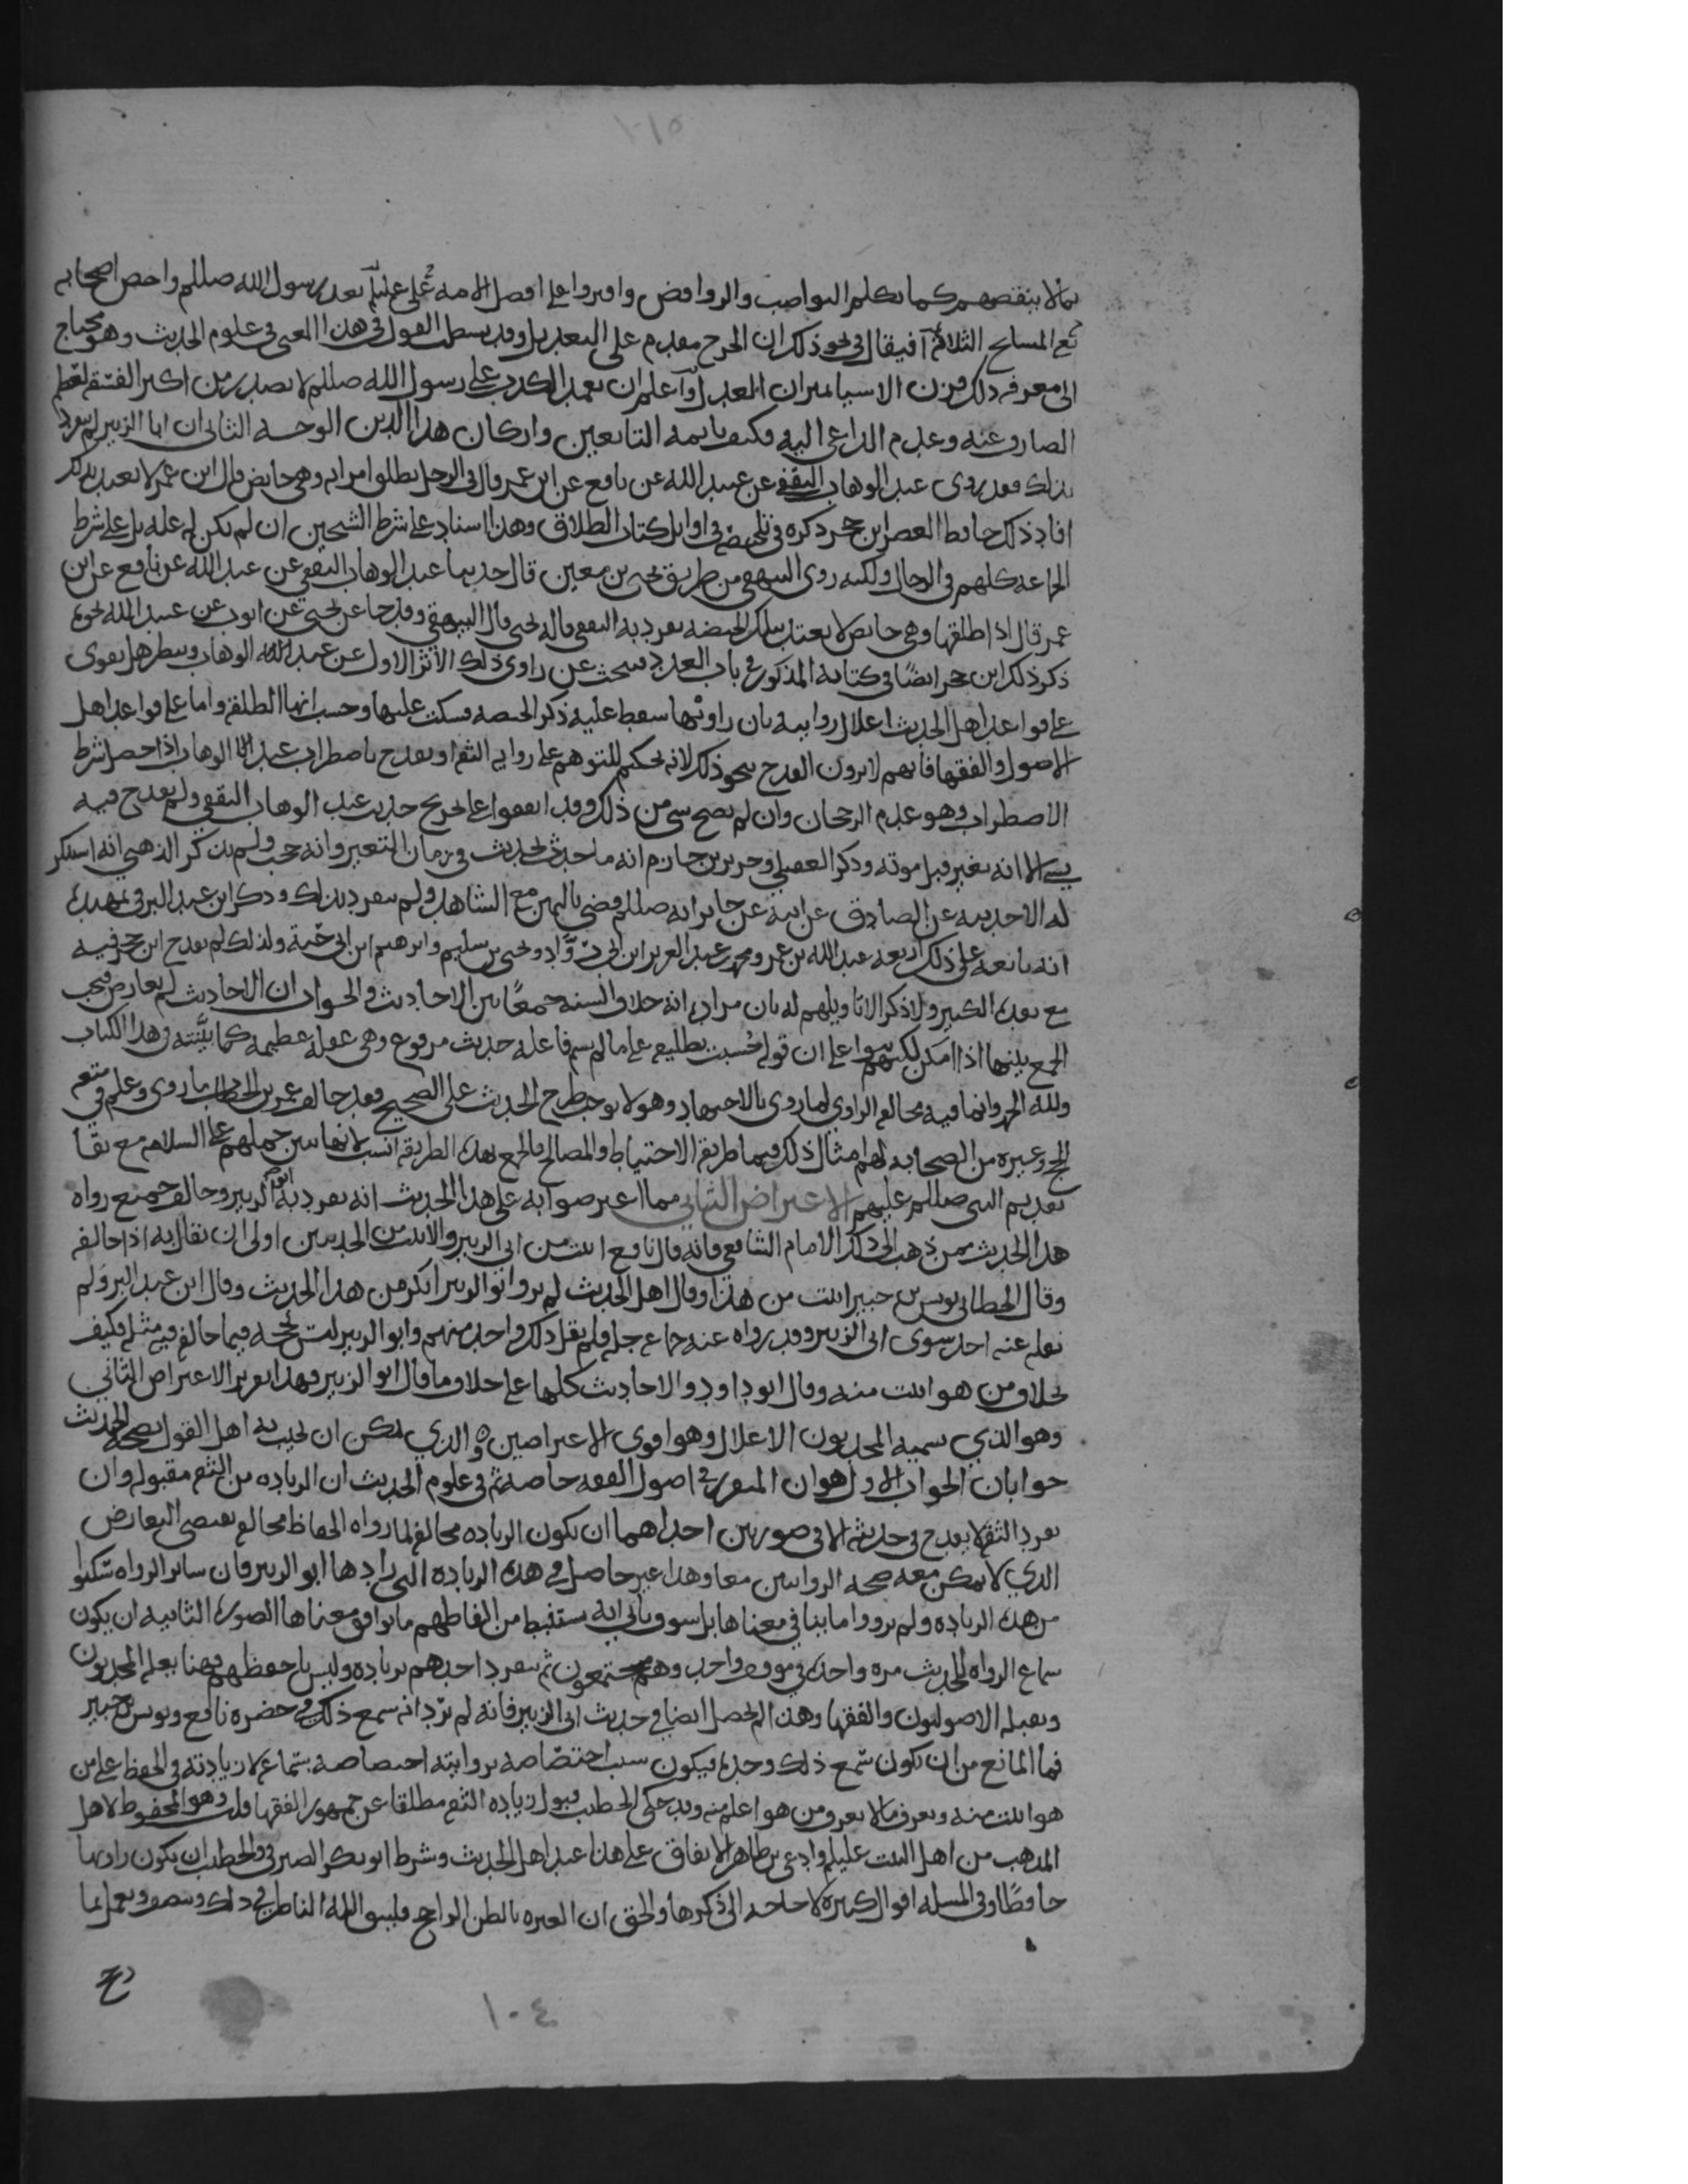 ١٠١٥
بما لا ينقصهم كما تكلم النواصب والروافض وافتروا على افضل الامه علي عليلم بعد رسول الله صللم واخص اصحابه
مع المسايح الثلاثه افيقال في نحو ذلك ان الجرح مقدم على التعديل وقد بسطت القول في هذا المعنى في علوم الحديث وهو محتاج
الى معرفه ذلك فزن الاشيا بميزان المعدل واعلم ان تعمد الكذب على رسول الله صللم لا يصدر من اكثر الفسقه لعظم
الصارف عنه وعدم الداعي اليه فكيف بايمه التابعين واركان هذا الدين الوجه الثاني ان ابا الزبير لم ينفرد
بذلك فقد روى عبد الوهاب الثقفي عن عبيد الله عن نافع عن ابن عمر قال في الرجل يطلق امراته وهي حايض قال ابن عمر لا يعتد بذلك
افاد ذلك حافظ العصر ابن حجر ذكره في تلخيصه في اوايل كتاب الطلاق وهذا اسناد على شرط الشيخين ان لم يكن له عله بل على شرط
الجماعه كلهم في الرجال ولكنه روى البيهقي من طريق يحيى بن معين قال حدثنا عبد الوهاب الثقفي عن عبيد الله عن نافع عن ابن
عمر قال اذا طلقها وهي حايض لا يعتد بتلك الحيضه تفرد به الثقفي قاله يحيى قال البيهقي وقد جا عن يحيى عن ايوب عن عبيد الله نحوه
ذكر ذلك ابن حجر ايضًا في كتابه المذكور في باب العدد فيبحث عن راوي ذلك الاثر الاول عن عبد الوهاب وينظر هل يقوى
على قواعد اهل الحديث اعلال روايته بان راويها سقط عليه ذكر الحيضه فسكت عليها وحسب انها الطلقه واما على قواعد اهل
الاصول والفقها فانهم لا يرون القدح بنحو ذلك لانه تحكيم للتوهم على روايه الثقه او يقدح باضطراب عبد الوهاب اذا حصل شرط
الاضطراب وهو عدم الرجحان وان لم يصح شي من ذلك وقد اتفقوا على تخريج حديث عبد الوهاب الثقفي ولم يقدح فيه
بشي الا انه تغير قبل موته وذكر العقيلي وجرير بن حازم انه ما حدث بحديث في زمان التغير وانه حجب ولم يذكر الذهبي انه استنكر
له الا حديثه عن الصادق عن ابيه عن جابر انه صللم قضى باليمين مع الشاهد ولم ينفرد بذلك وذكر ابن عبد البر في تمهيده
انه تابعه على ذلك اربعه عبد الله بن عمر ومحمد بن عبد العزيز ابن ابي دوّاد ويحيى بن سليم وابرهيم ابن ابي حيّة ولذلك لم يقدح ابن حجر فيه
مع نقده الكبير ولا ذكر الا تاويلهم له بان مراده انه خلاف السنه جمعًا بين الاحاديث والجواب ان الاحاديث لم تعارض فيجب
الجمع بينها اذا امكن لكنهم بنوا على ان قوله حُسبت بطليقه على ما لم يسم فاعله حديث مرفوع وهي غفله عظيمه كما بيَّنته في هذا الكتاب
ولله الحمد وانما فيه مخالفه الراوي لما روى بالاجتهاد وهو لا يوجب طرح الحديث على الصحيح فقد خالف عمر بن الخطاب ما روى وعلم في متعه
الحج وغيره من الصحابه لهم امثال ذلك فيما طريقه الاحتياط والمصالح والجمع بهذه الطريقه انسب لانها بين حملهم على السلامه مع بقا
تقديم النبي صللم عليهم الاعتراض الثاني مما اعترضوا به على هذا الحديث انه تفرد به ابو الزبير وخالف جميع رواه
هذا الحديث ممن ذهب الى ذلك الامام الشافعي فانه قال نافع اثبت من ابي الزبير والاثبت من الحديثين اولى ان يقال به اذا خالفه
وقال الخطابي يونس بن جبير اثبت من هذا وقال اهل الحديث لم يرو ابو الزبير انكر من هذا الحديث وقال ابن عبد البر ولم
نقله عنه احد سوى ابي الزبير وقد رواه عنه جماعه جله فلم يقل ذلك واحد منهم وابو الزبير ليس بحجه فيما خالفه فيه مثله فكيف
بخلاف من هو اثبت منه وقال ابو داود والاحاديث كلها على خلاف ما قال ابو الزبير فهذا تقرير الاعتراض الثاني
وهو الذي يسميه المحدثون الاعلال وهو اقوى الاعتراضين ه والذي يمكن ان يجيب به اهل القول بصحه الحديث
جوابان الجواب الاول هو ان المقرر في اصول الفقه خاصه ثم في علوم الحديث ان الزياده من الثقه مقبوله وان
تفرد الثقه لا يقدح في حديثه الا في صورتين احداهما ان تكون الزياده مخالفه لما رواه الحفاظ مخالفه تقتضي التعارض
الذي لا يمكن معه صحه الروايتين معا وهذا غير حاصل في هذه الزياده التي زادها ابو الزبير فان ساير الرواه سكتوا
عن هذه الزياده ولم يرووا ما ينافي معناها بل سوف ياتي انه يستنبط من الفاظهم ما يوافق معناها الصوره الثانيه ان يكون
سماع الرواه للحديث مره واحده في موقف واحد وهم مجتمعون ثم ينفرد احدهم بزياده وليس باحفظهم فهنا يعله المحدثون
ويقبله الاصوليون والفقها وهذا لم يحصل ايضا في حديث ابي الزبير فانه لم يرد انه سمع ذلك في حضره نافع ويونس بن جبير
فما المانع من ان يكون سمع ذلك وحده فيكون سبب اختصّاصه بروايته اختصاصه بسماعه لا زيادته في الحفظ على من
هو اثبت منه ويعرف ما لا يعرف من هو اعلم منه وقد حكى الخطيب قبول زياده الثقه مطلقا عن جمهور الفقها قلت وهو المحفوظ لاهل
المذهب من اهل البيت عليلم وادعى بن طاهر الاتفاق على هذا عند اهل الحديث وشرط ابو بكر الصيرفي والخطيب ان يكون راويها
حافظًا وفي المسله اقوال كثيره لا حاجه الى ذكرها والحق ان العبره بالظن الراجح فليتق الله الناظر في ذلك وينصف ويعمل بما
١٠٤